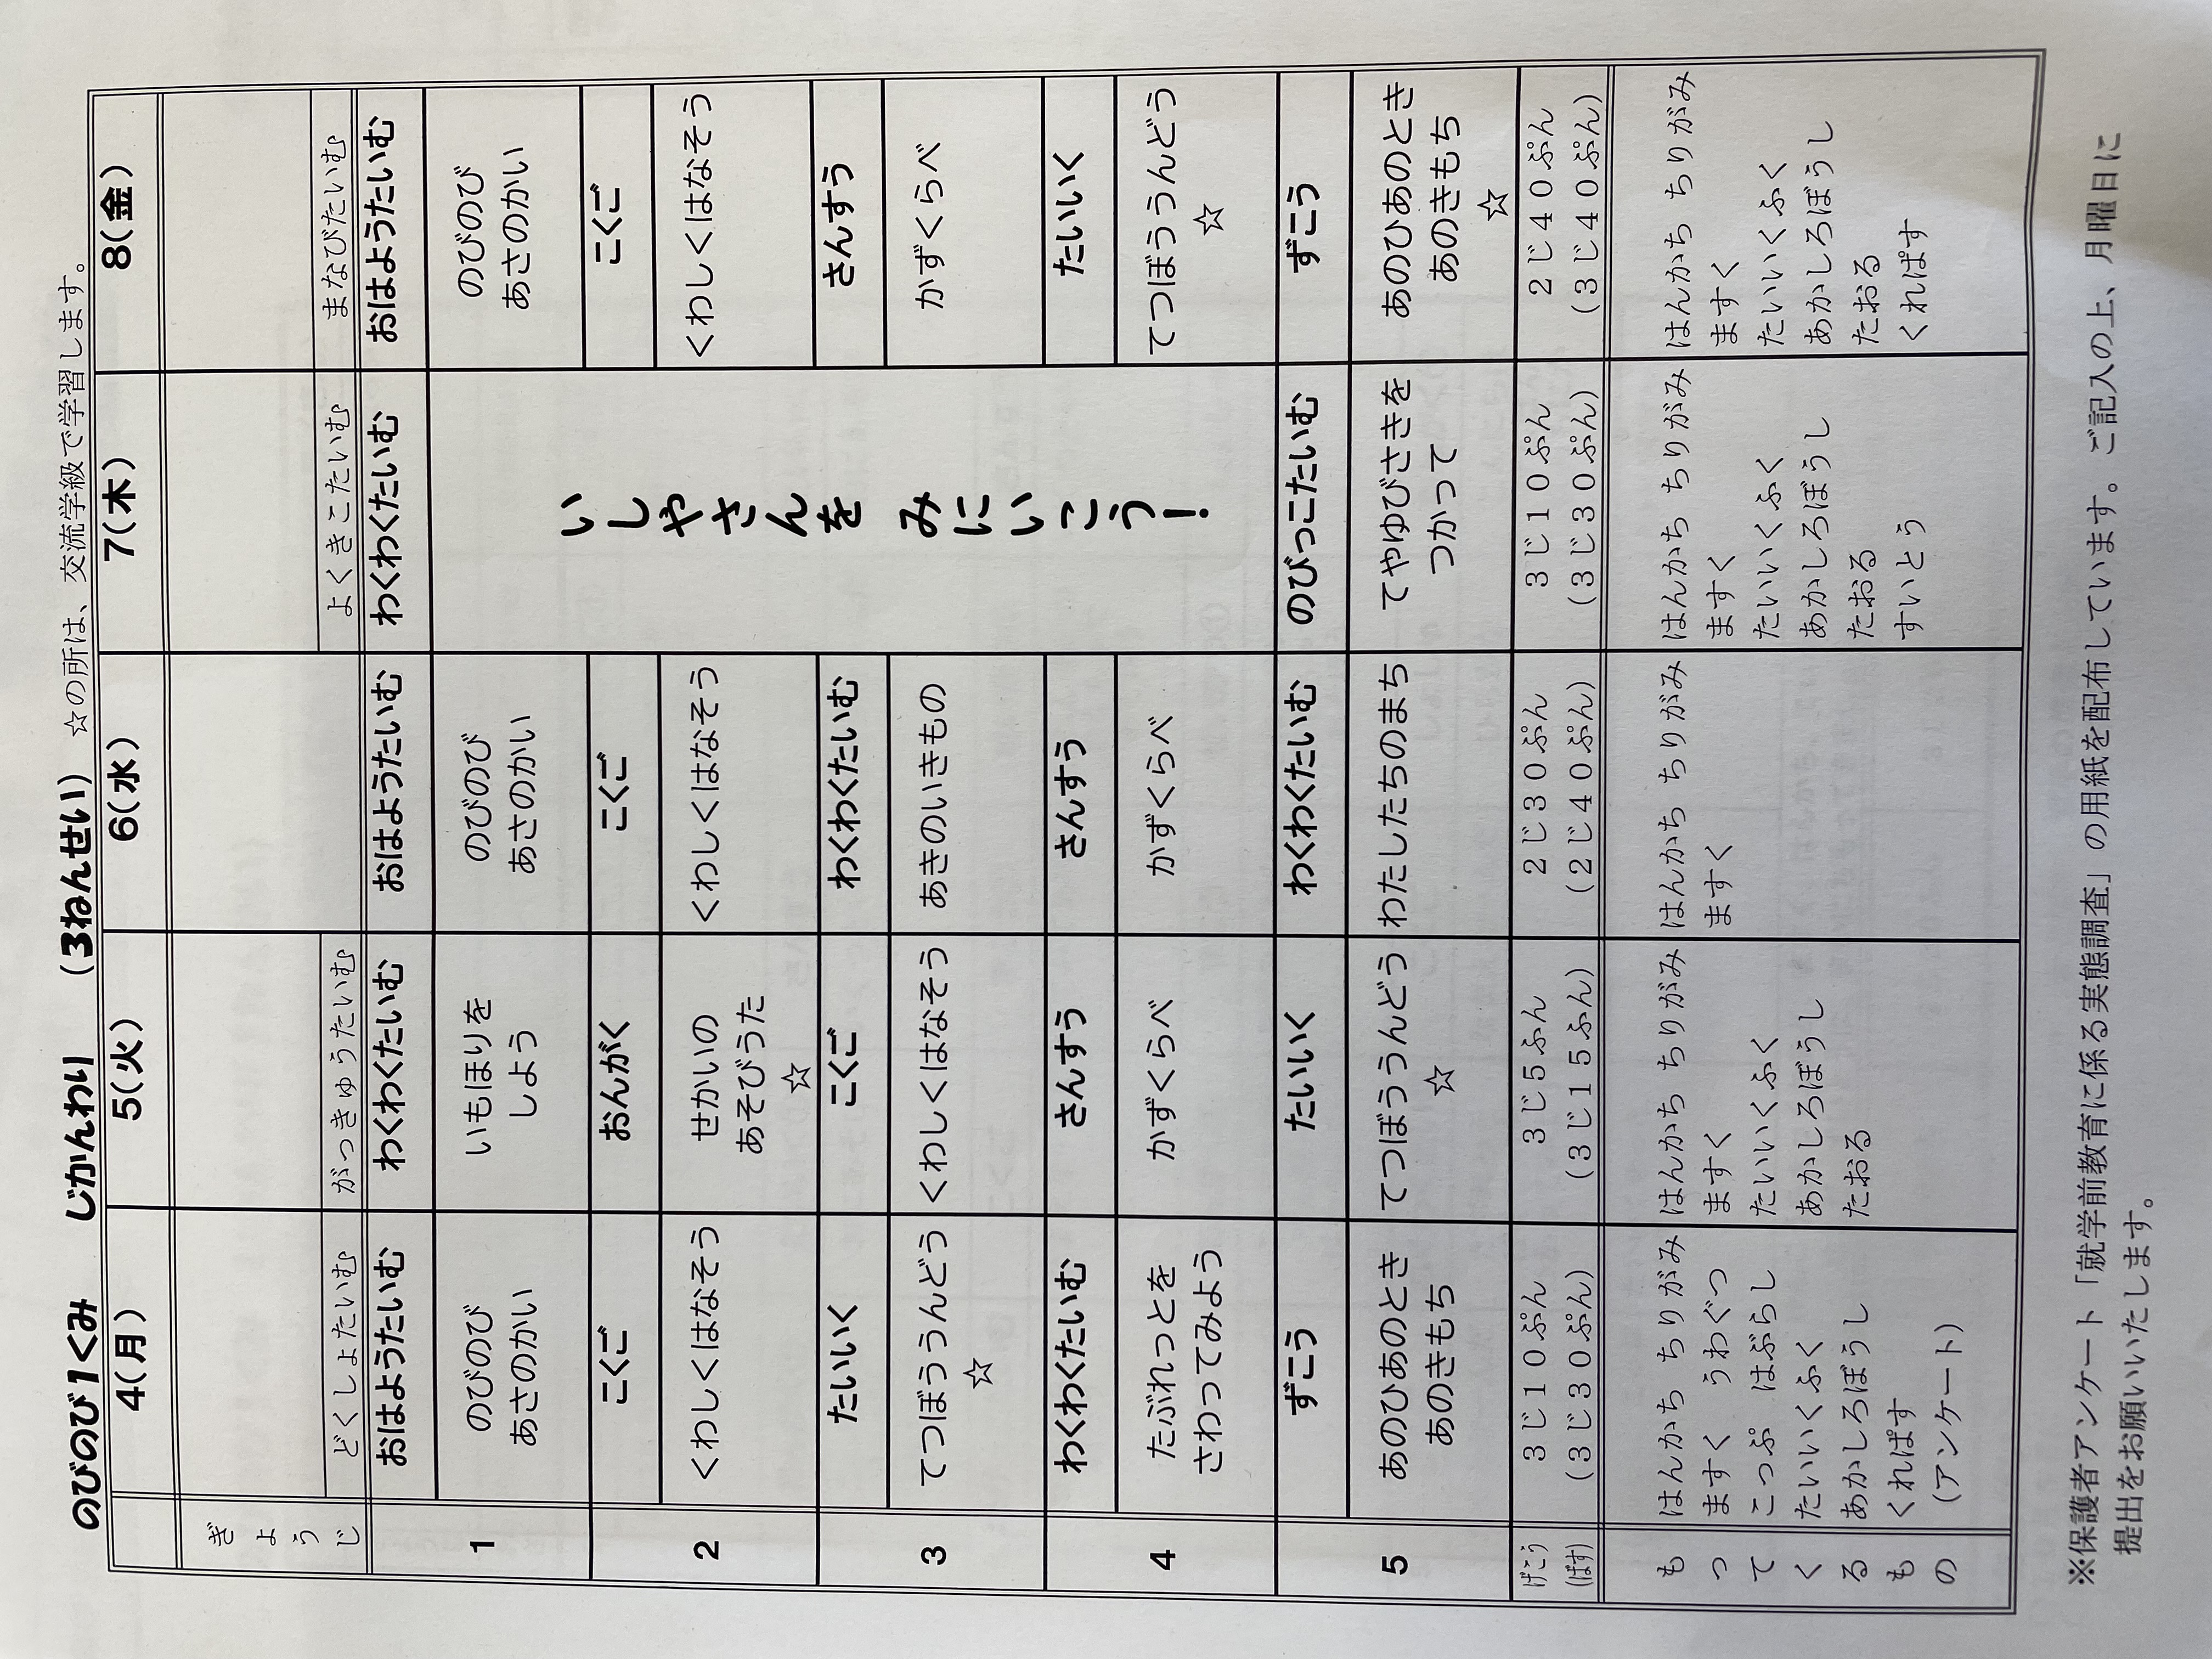 のびのび1くみ　じかんわり　(3ねんせい)　☆の所は、交流学級で学習します。
4(月)　5(火)　6(水)　7(木)　8(金)
ぎょうじ
どくしょたいむ　がっきゅうたいむ　よくきこたいむ　まなびたいむ
1
おはようたいむ　わくわくたいむ　おはようたいむ　わくわくたいむ　おはようたいむ
のびのび　いもほりを　のびのび　のびのび
あさのかい　しよう　あさのかい　あさのかい
いしやさんを みにいこう！
2
こくご　おんがく　こくご　こくご
くわしくはなそう　せかいの　くわしくはなそう　くわしくはなそう
あそびうた
☆
3
たいいく　こくご　わくわくたいむ　さんすう
てつぼううんどう　くわしくはなそう　あきのいきもの　かずくらべ
☆
4
わくわくたいむ　さんすう　さんすう　たいいく
たぶれっとを　かずくらべ　かずくらべ　てつぼううんどう
さわってみよう　☆
5
ずこう　たいいく　わくわくたいむ　のびっこたいむ　ずこう
あのひあのとき　てつぼううんどう　わたしたちのまち　てやゆびさきを　あのひあのとき
あのきもち　☆　つかって　あのきもち
☆
げこう　3じ10ぷん　3じ5ふん　2じ30ぷん　3じ10ぷん　2じ40ぷん
(ばす)　(3じ30ぷん)　(3じ15ふん)　(2じ40ぷん)　(3じ30ぷん)　(3じ40ぷん)
もってくるもの
はんかち ちりがみ　はんかち ちりがみ　はんかち ちりがみ　はんかち ちりがみ　はんかち ちりがみ
ますく　うわぐつ　ますく　ますく　ますく　ますく
こっぷ　はぶらし　たいいくふく　たいいくふく　たいいくふく
たいいくふく　あかしろぼうし　あかしろぼうし　あかしろぼうし
あかしろぼうし　たおる　たおる　たおる
くれぱす　すいとう　くれぱす
(アンケート)
※保護者アンケート「就学前教育に係る実態調査」の用紙を配布しています。ご記入の上、月曜日に
提出をお願いいたします。